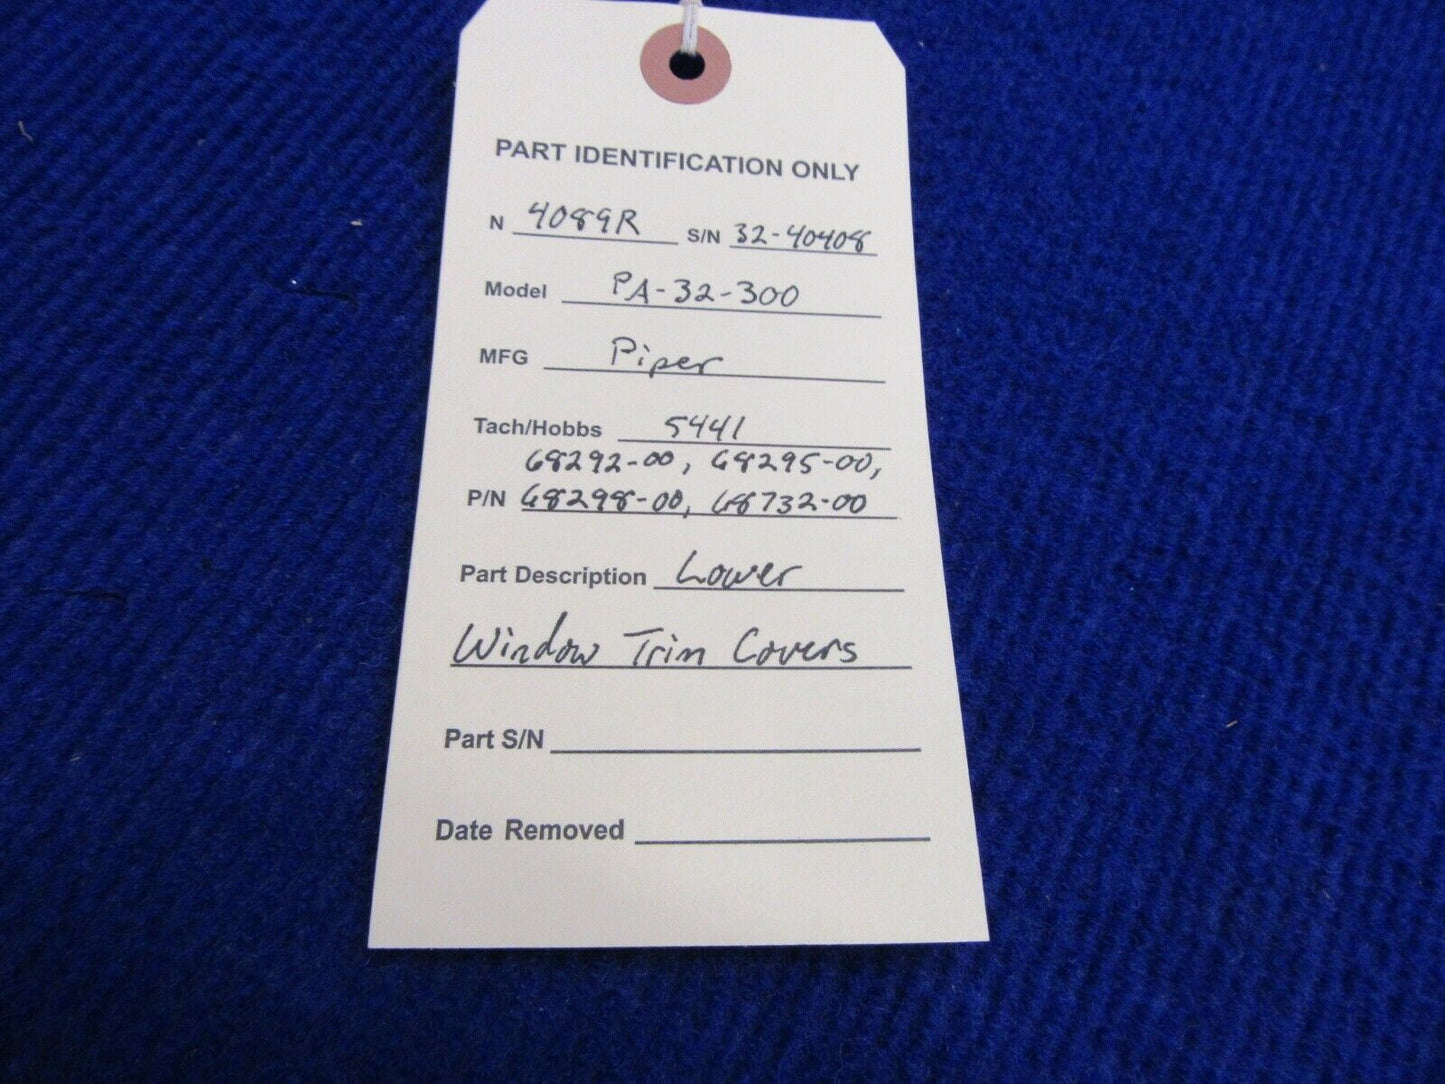 PART IDENTIFICATION ONLY
N 4089R S/N 32-40408
Model PA-32-300
MFG Piper
Tach/Hobbs 5441
68292-00, 68295-00,
P/N 68298-00, 68732-00
Part Description Lower
Window Trim Covers
Part S/N
Date Removed